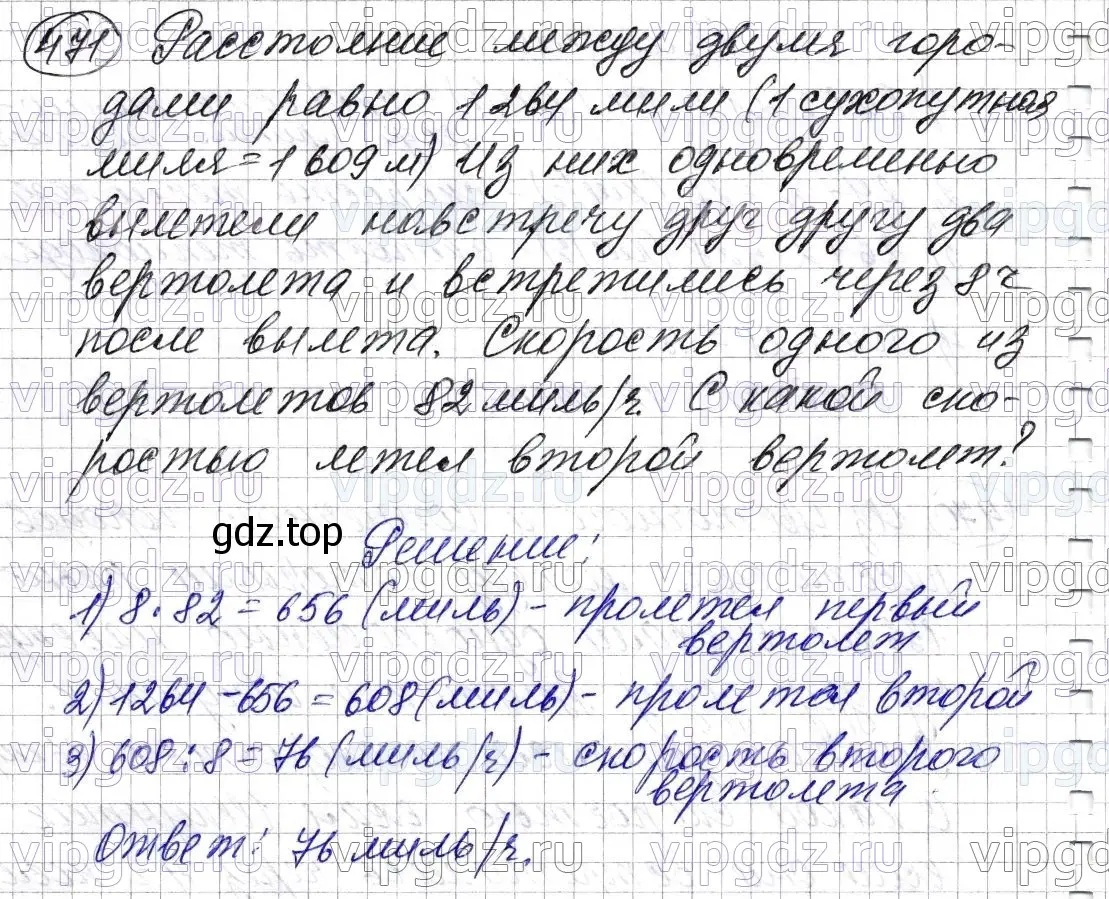 471 Расстояние между двумя горо-
дами равно 1264 мили (1 сухопутная
миля = 1 609 м) Из них одновременно
вылетели навстречу друг другу два
вертолета и встретились через 8 ч
после вылета. Скорость одного из
вертолетов 82 миль/ч. С какой ско-
ростью летел второй вертолет?
gdz.top
Решение:
1) 8 · 82 = 656 (миль) - пролетел первый
вертолет
2) 1264 - 656 = 608 (миль) - пролетел второй
3) 608 : 8 = 76 (миль/ч) - скорость второго
вертолета.
Ответ: 76 миль/ч.
vipgdz.ru